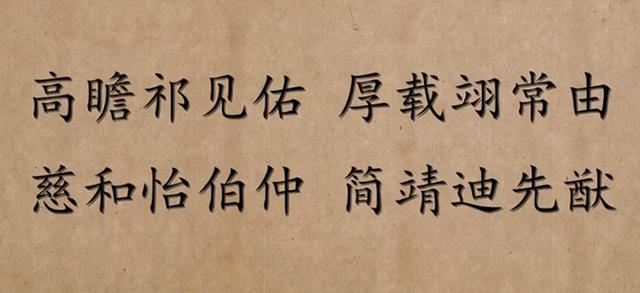 高瞻祁见佑 厚载翊常由
慈和怡伯仲 简靖迪先猷